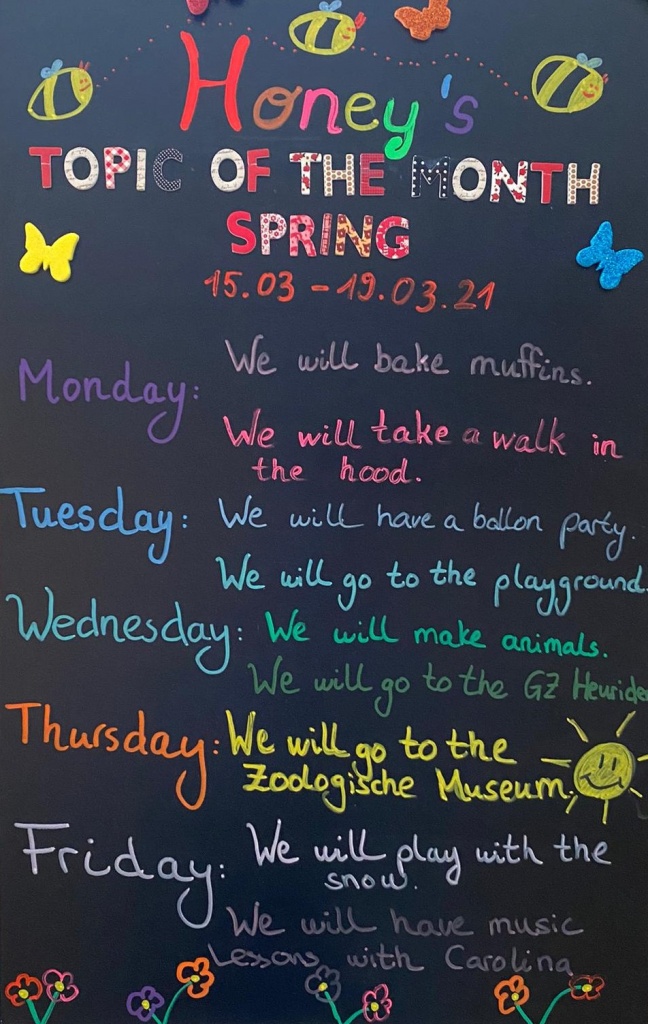 Honey's
TOPIC OF THE MONTH
SPRING
15.03 - 19.03.21
Monday: We will bake muffins.
We will take a walk in
the hood.
Tuesday: We will have a ballon party.
We will go to the playground.
Wednesday: We will make animals.
We will go to the GZ
Thursday: We will go to the
Zoologische Museum.
Friday: We will play with the
snow.
We will have music
Lessons with Carolina